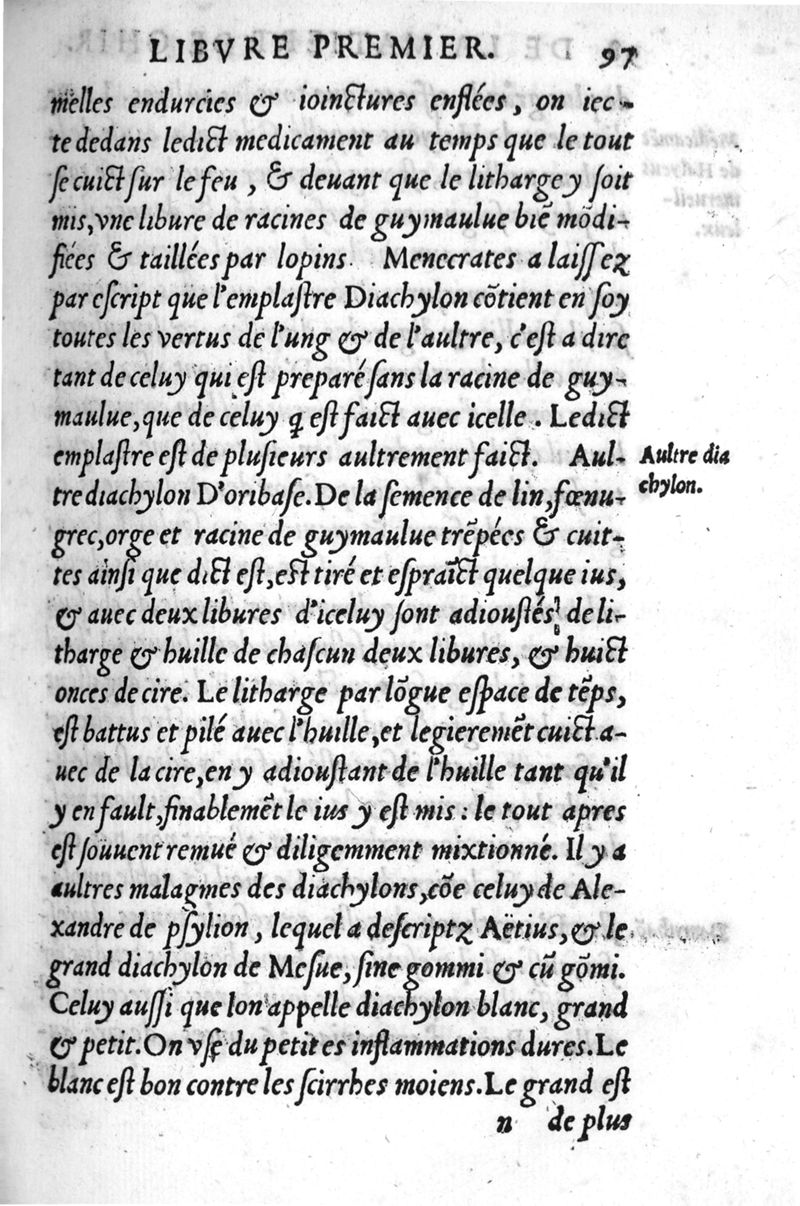 LIBVRE PREMIER. 97
melles endurcies & ioinctures enflées, on iec-
te dedans ledict medicament au temps que le tout
ſe cuict ſur le feu, & deuant que le litharge y ſoit
mis, vne libure de racines de guymaulue biẽ mõdi-
fiées & taillées par lopins. Menecrates a laiſſez
par eſcript que l'emplaſtre Diachylon cõtient en ſoy
toutes les vertus de l'ung & de l'aultre, c'eſt a dire
tant de celuy qui eſt preparé ſans la racine de guy-
maulue, que de celuy q̃ eſt faict auec icelle. Ledict
emplaſtre eſt de pluſieurs aultrement faict. Aul-
Aultre dia
chylon.
tre diachylon D'oribaſe. De la ſemence de lin, fœnu-
grec, orge et racine de guymaulue trẽpées & cuit-
tes ainſi que dict eſt, eſt tiré et eſpraĩct quelque ius,
& auec deux libures d'iceluy ſont adiouſtés de li-
tharge & huille de chaſcun deux libures, & huict
onces de cire. Le litharge par lõgue eſpace de tẽps,
eſt battus et pilé auec l'huille, et legieremẽt cuict a-
uec de la cire, en y adiouſtant de l'huille tant qu'il
y en fault, finablemẽt le ius y eſt mis : le tout apres
eſt ſouuent remué & diligemment mixtionné. Il y a
aultres malagmes des diachylons, cõe celuy de Ale-
xandre de pſylion, lequel a deſcriptz Aëtius, & le
grand diachylon de Meſue, ſine gommi & cũ gõmi.
Celuy auſſi que lon appelle diachylon blanc, grand
& petit. On vſe du petit es inflammations dures. Le
blanc eſt bon contre les ſcirrhes moiens. Le grand eſt
n de plus